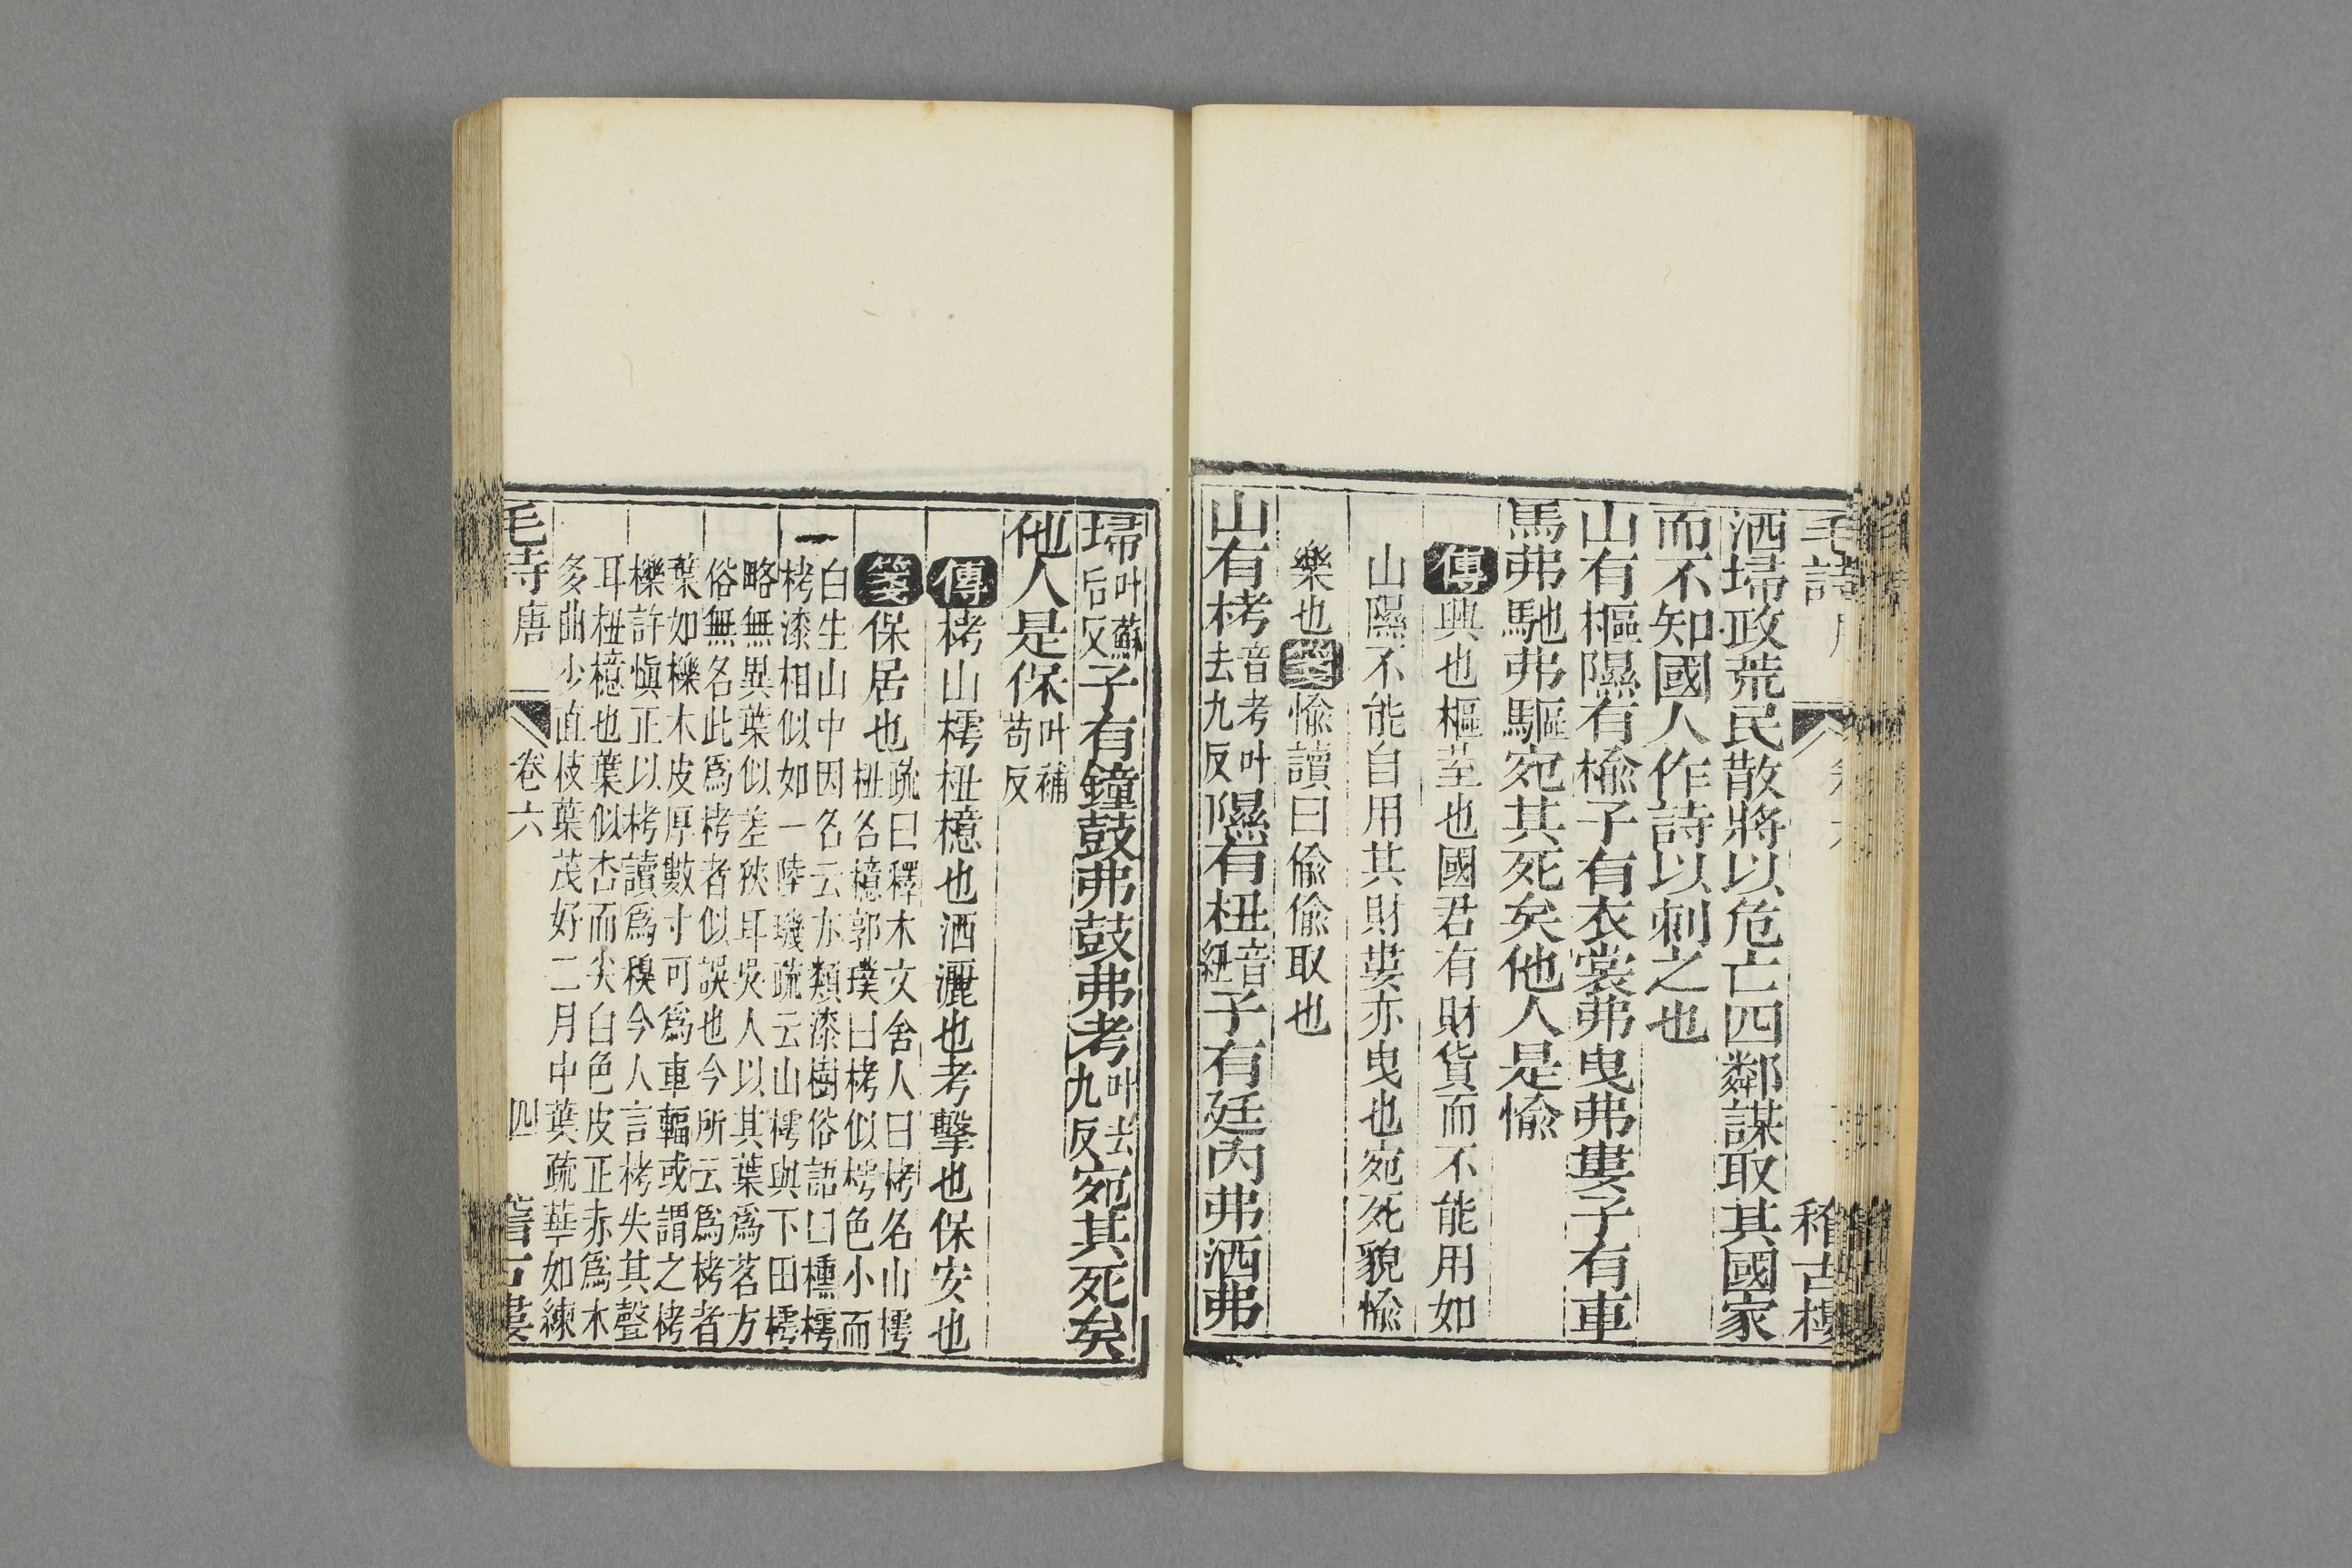 毛詩 稽古樓
洒埽政荒民散將以危亡四鄰謀取其國家
而不知國人作詩以刺之也
山有樞隰有榆子有衣裳弗曳弗婁子有車
馬弗馳弗驅宛其死矣他人是愉
傳興也樞荎也國君有財貨而不能用如
山隰不能自用其財婁亦曳也宛死貌愉
樂也箋愉讀曰偷偷取也
山有栲音考叶去九反隰有杻音紐子有廷內弗洒弗
埽叶蘇后反子有鐘鼓弗鼓弗考叶去九反宛其死矣
他人是保叶補苟反
傳栲山樗杻檍也洒灑也考擊也保安也
箋保居也疏曰釋木文舍人曰栲名山樗
杻名檍郭璞曰栲似樗色小而
白生山中因名云亦類漆樹俗語曰櫄樗
栲漆相似如一陸璣疏云山樗與下田樗
略無異葉似差狹耳吳人以其葉爲茗方
俗無名此爲栲者似誤也今所云爲栲者
葉如櫟木皮厚數寸可爲車輻或謂之栲
櫟許愼正以栲讀爲糗今人言栲失其聲
耳杻檍也葉似杏而尖白色皮正赤爲木
多曲少直枝葉茂好二月中葉疏華如練
毛詩唐 卷六 四 稽古樓